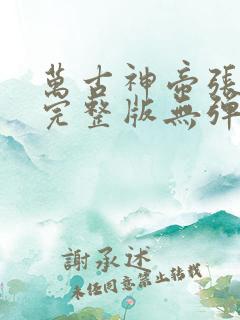 萬古神帝張
完整版無彈
謝承述
未經同意禁止轉載